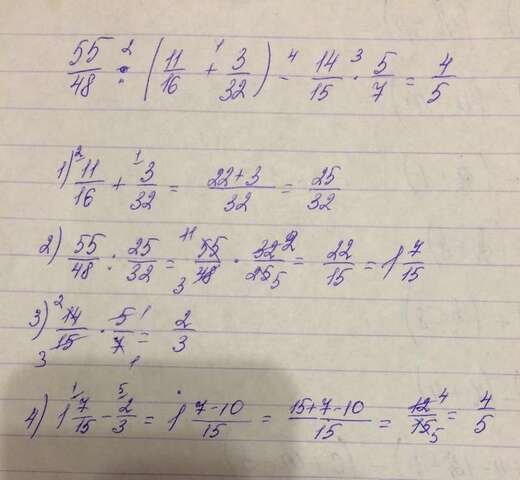 55/48 :² (11/16 +¹ 3/32) -⁴ 14/15 ·³ 5/7 = 4/5
1) ²11/16 + ¹3/32 = 22+3/32 = 25/32
2) 55/48 : 25/32 = ¹¹55/48₃ · 32²/25₅ = 22/15 = 1 7/15
3) ²14/15₃ · 5¹/7₁ = 2/3
4) 1 ¹7/15 - ⁵2/3 = 1 7-10/15 = 15+7-10/15 = 12⁴/15₅ = 4/5